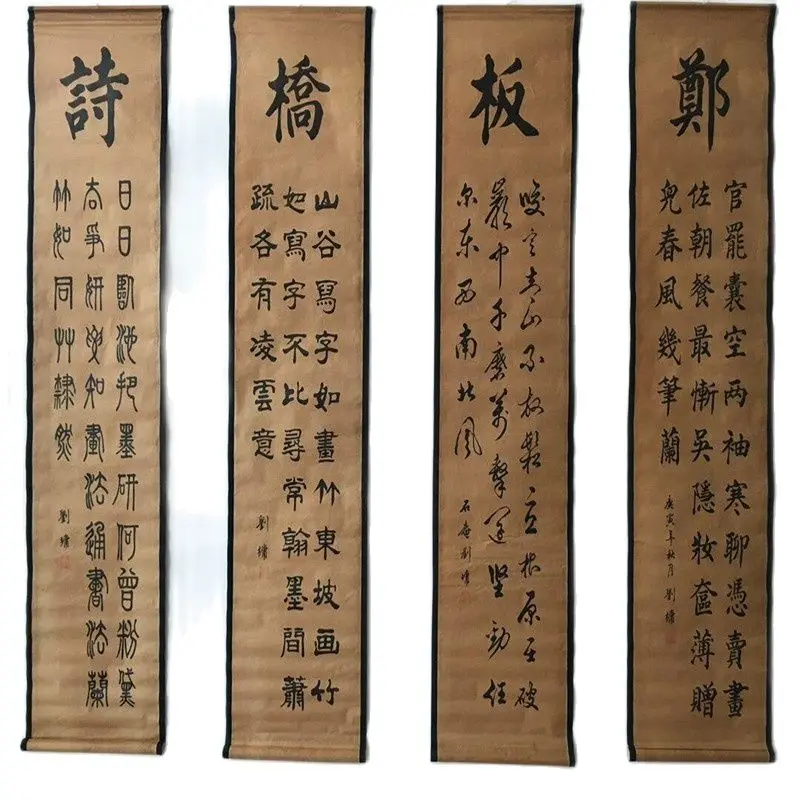 鄭
官罷囊空两袖寒聊憑賣畫
佐朝餐最慚吳隱妝奩薄贈
兒春風幾筆蘭
庚寅年秋月 劉墉
板
咬定青山不放鬆立根原在破
巖中千磨萬擊還堅勁任
尔东西南北風
石庵劉墉
橋
山谷寫字如畫竹東坡画竹
如寫字不比尋常翰墨間蕭
疏各有凌雲意
劉墉
詩
日日臨池把墨研何曾粉黛
去爭妍要知畫法通書法蘭
竹如同艸隸然
劉墉